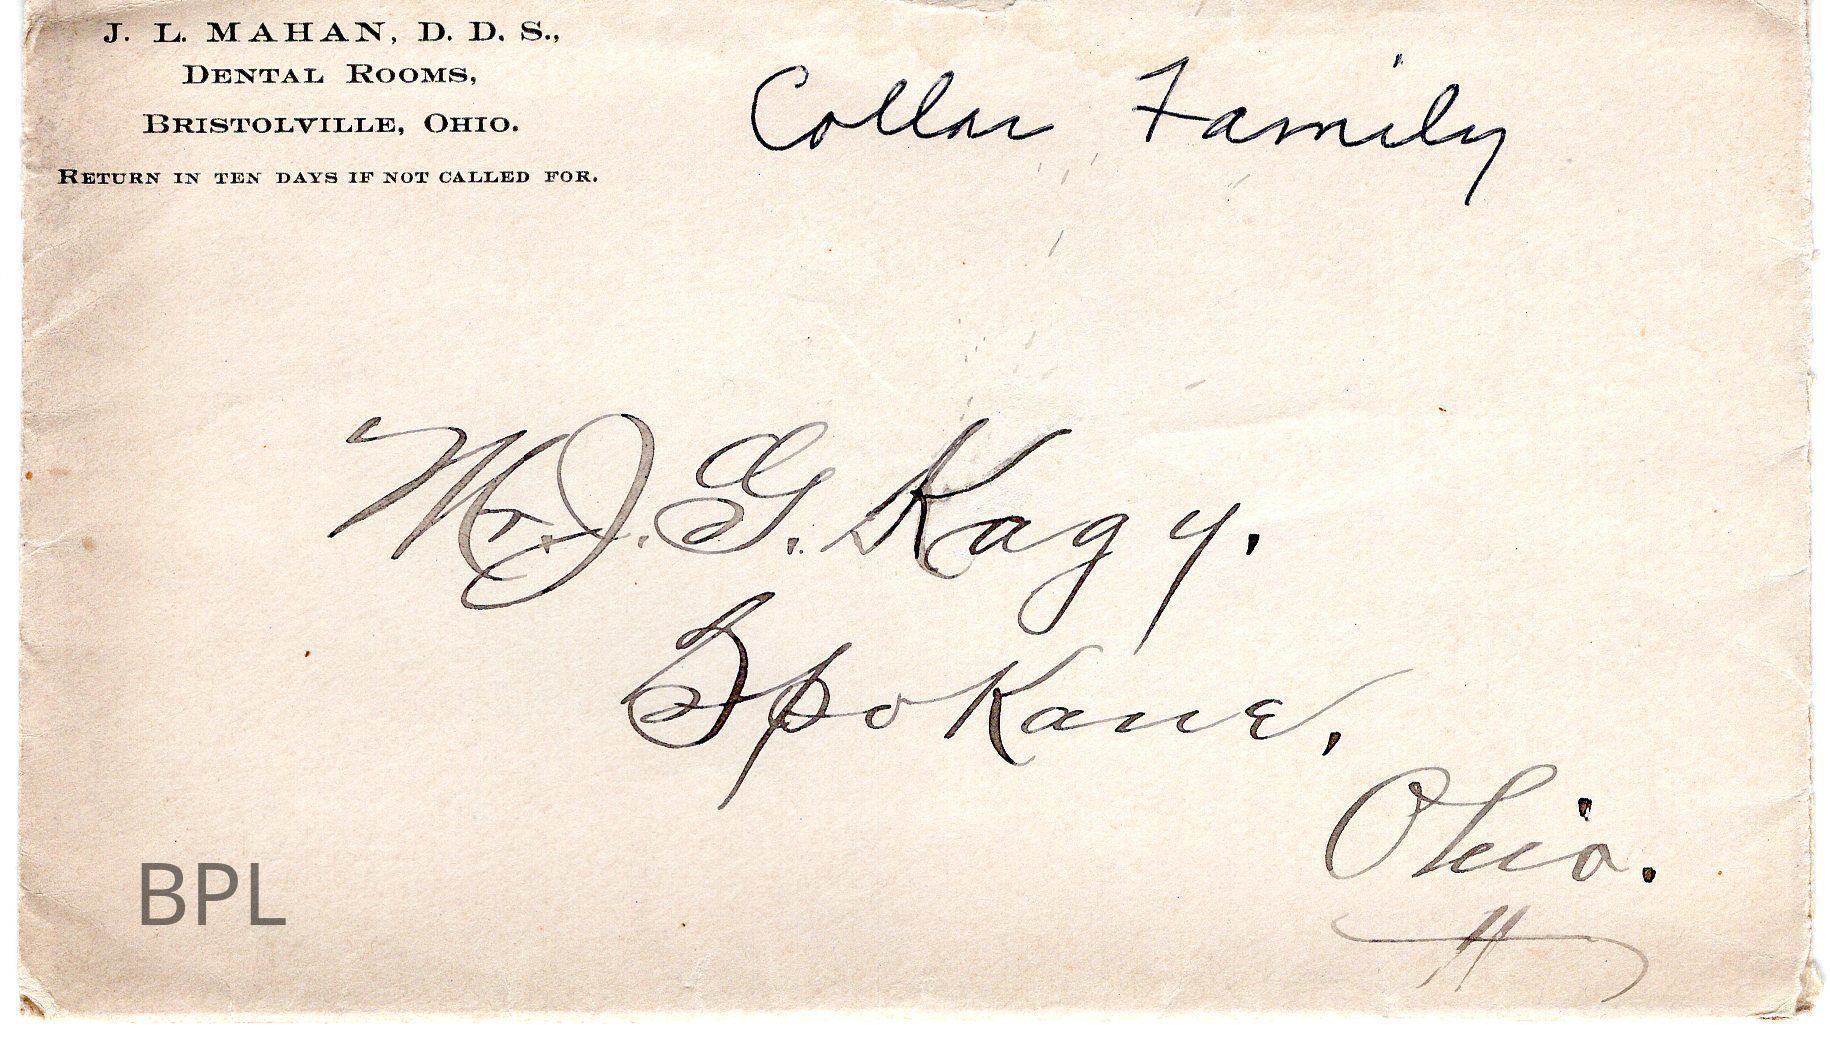 J. L. MAHAN, D. D. S.,
DENTAL ROOMS,
BRISTOLVILLE, OHIO.
RETURN IN TEN DAYS IF NOT CALLED FOR.
Collar Family
Mr. J. G. Kagy.
Spokane,
Ohio.
BPL